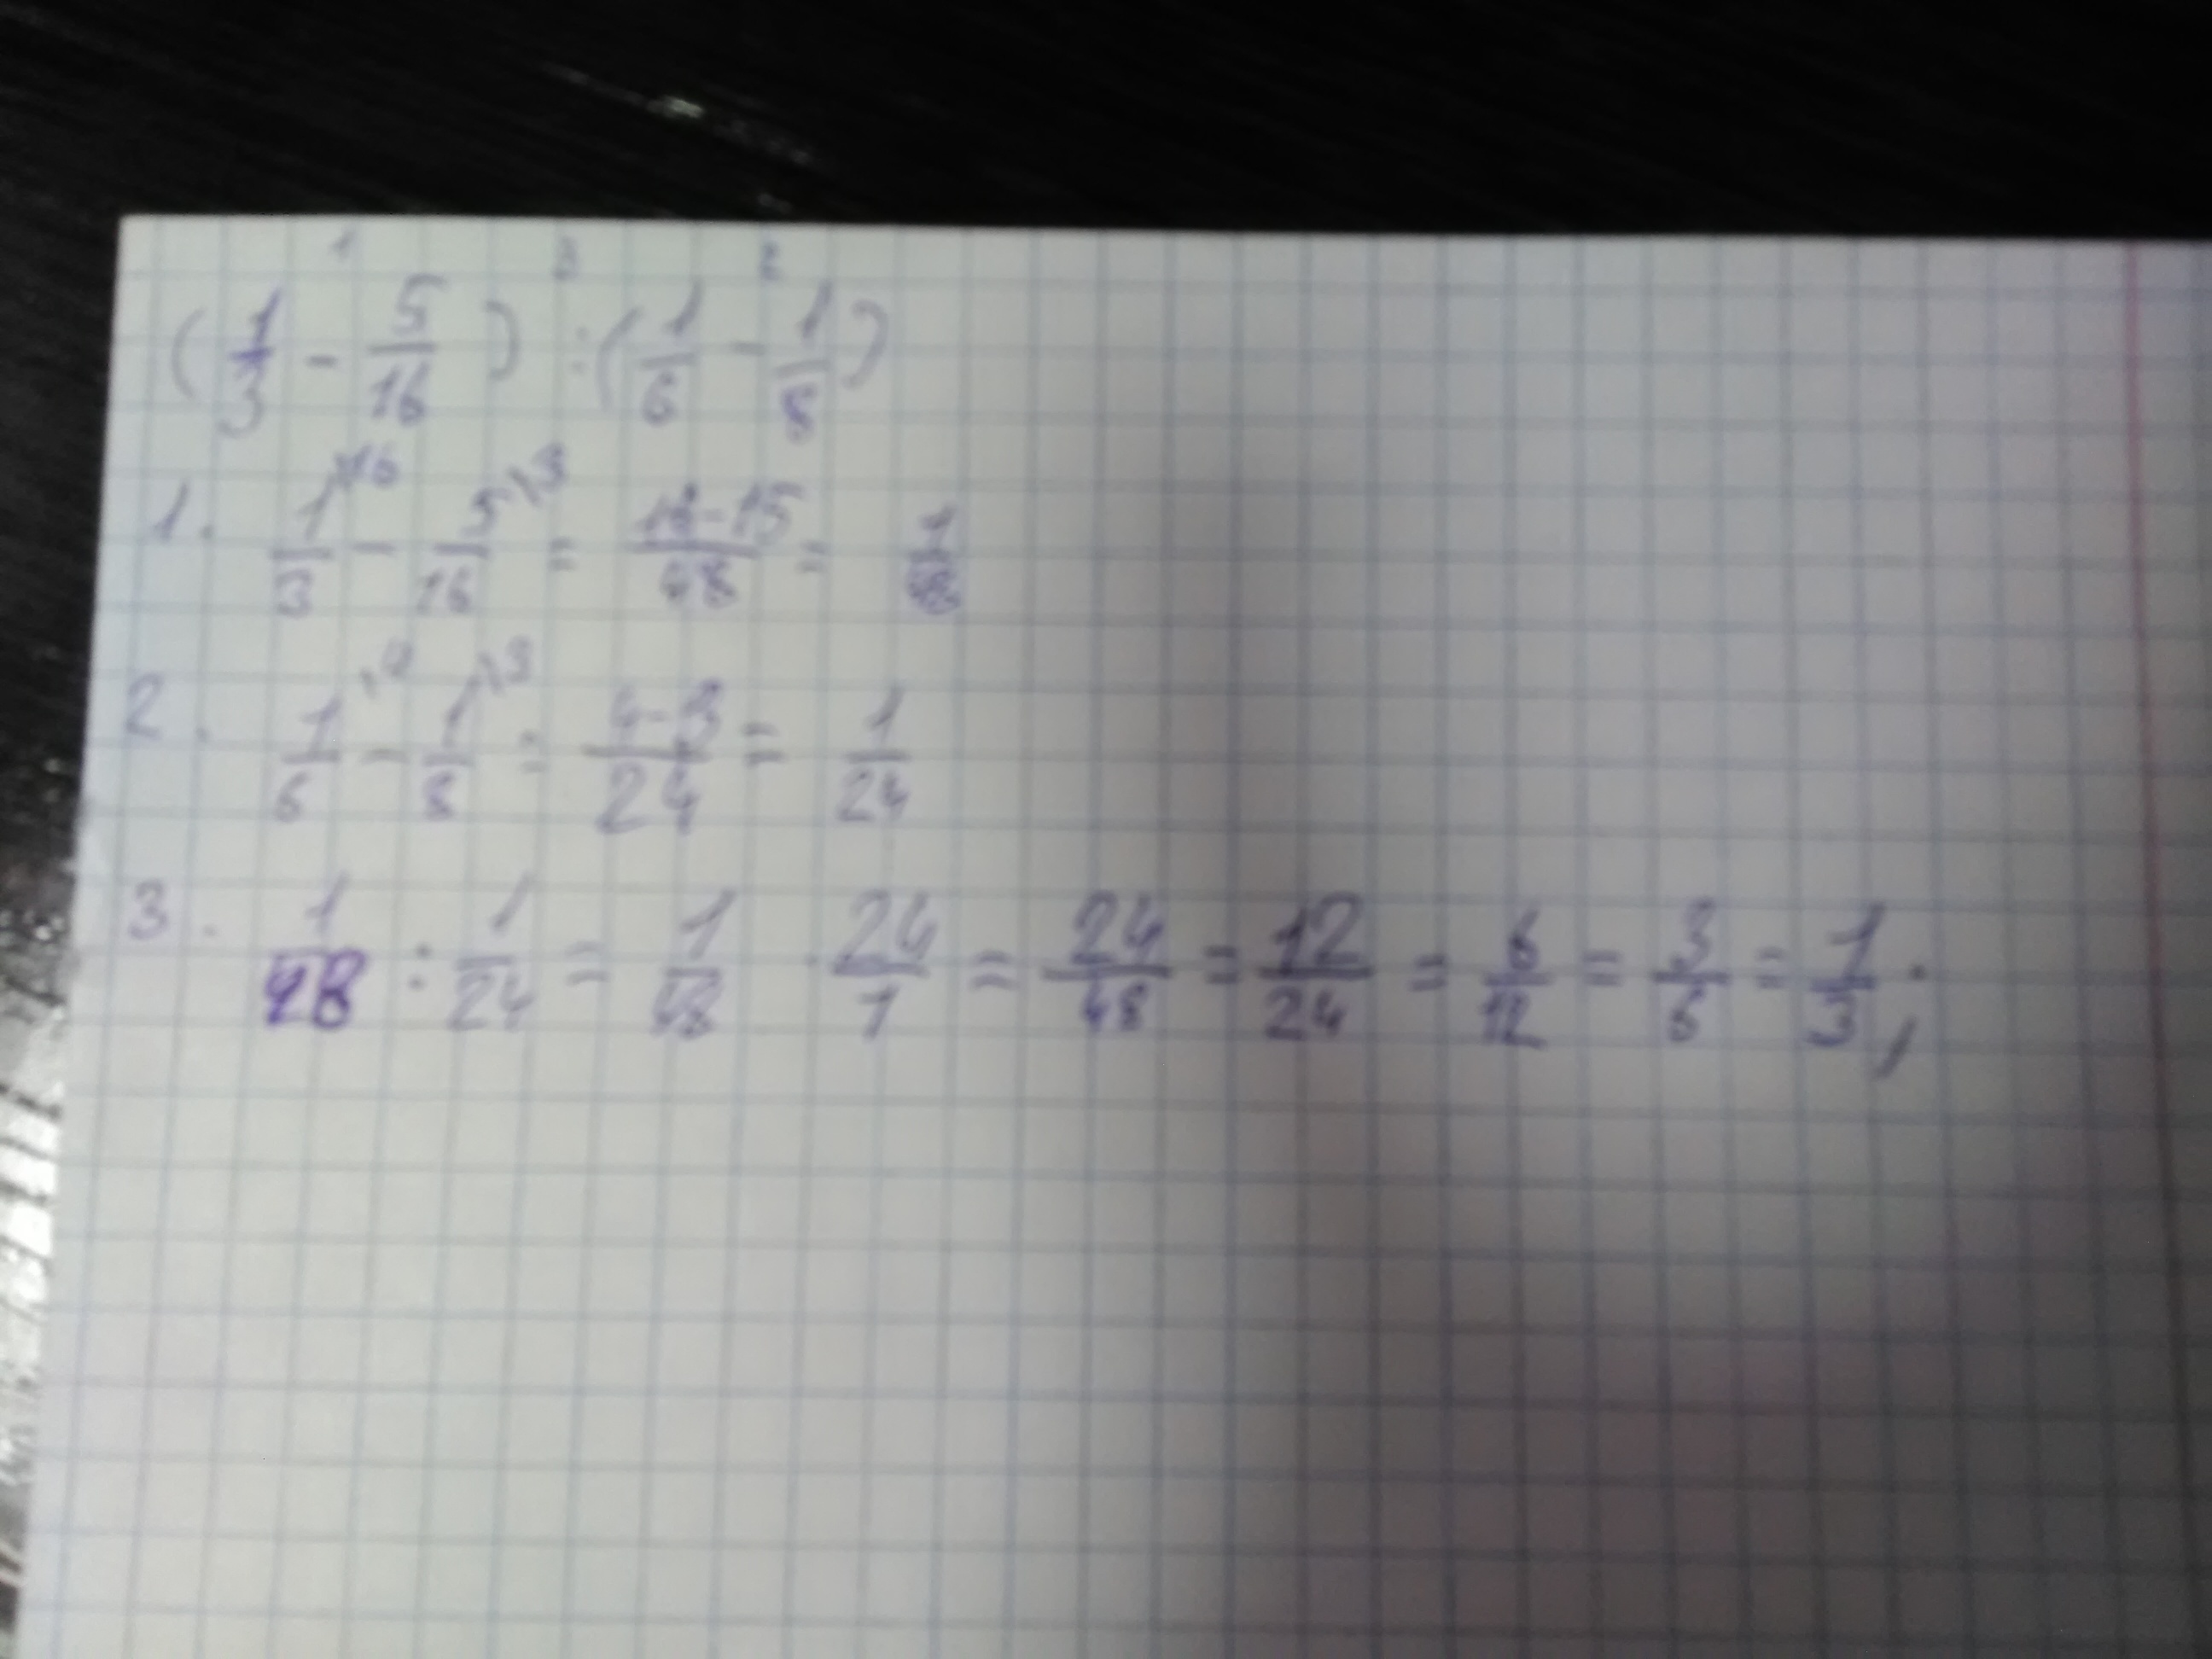 1 3 2
(1/3 - 5/16) : (1/6 - 1/8)
1. 1/3 \16 - 5/16 \3 = 16-15/48 = 1/48
2. 1/6 \4 - 1/8 \3 = 4-3/24 = 1/24
3. 1/48 : 1/24 = 1/48 · 24/1 = 24/48 = 12/24 = 6/12 = 3/6 = 1/3;